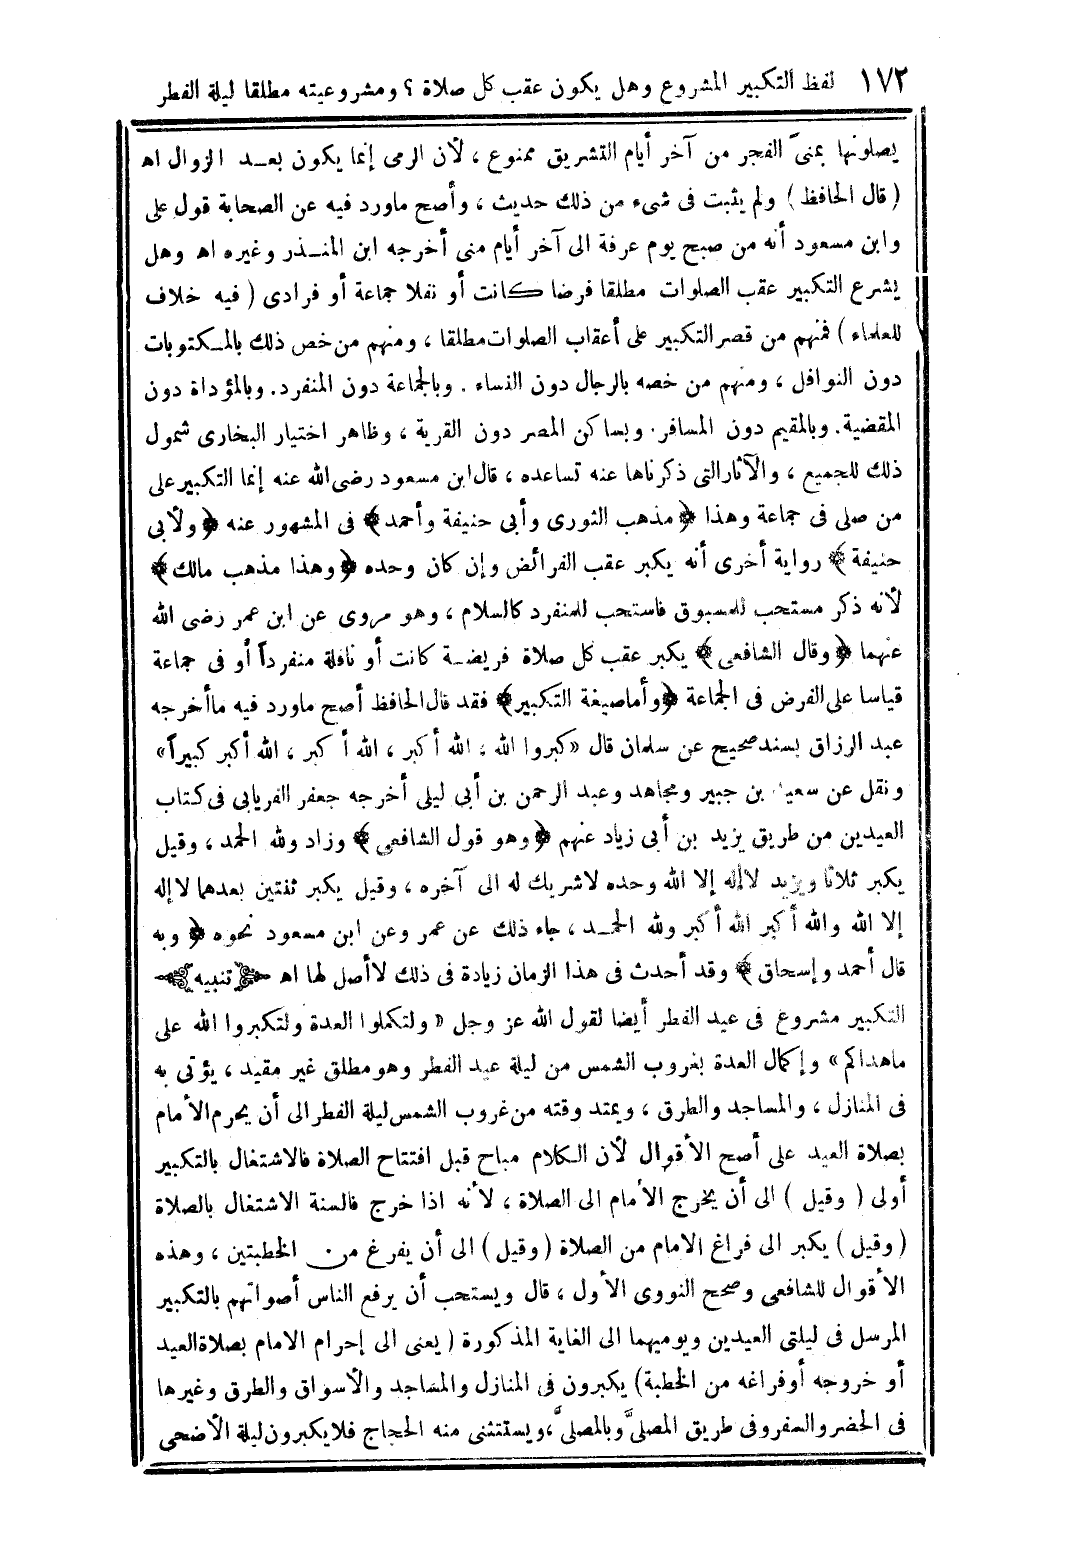 ١٧٢ لفظ التكبير المشروع وهل يكون عقب كل صلاة ؟ ومشروعيته مطلقا ليلة الفطر
يصلونها بمنىً الفجر من آخر أيام التشريق ممنوع ، لأن الرمى إنما يكون بعد الزوال اه
( قال الحافظ ) ولم يثبت فى شىء من ذلك حديث ، وأصح ماورد فيه عن الصحابة قول على
وابن مسعود أنه من صبح يوم عرفة الى آخر أيام منى أخرجه ابن المنذر وغيره اه وهل
يشرع التكبير عقب الصلوات مطلقا فرضا كانت أو نفلا جماعة أو فرادى ( فيه خلاف
للعلماء ) فمنهم من قصر التكبير على أعقاب الصلوات مطلقا ، ومنهم من خص ذلك بالمكتوبات
دون النوافل ، ومنهم من خصه بالرجال دون النساء . وبالجماعة دون المنفرد. وبالمؤداة دون
المقضية. وبالمقيم دون المسافر. وبساكن المصر دون القرية ، وظاهر اختيار البخارى شمول
ذلك للجميع ، والآثار التى ذكرناها عنه تساعده ، قال ابن مسعود رضى الله عنه إنما التكبير على
من صلى فى جماعة وهذا ﴿ مذهب الثورى وأبى حنيفة وأحمد﴾ فى المشهور عنه ﴿ ولأبى
حنيفة ﴾ رواية أخرى أنه يكبر عقب الفرائض وإن كان وحده ﴿ وهذا مذهب مالك﴾
لأنه ذكر مستحب للمسبوق فاستحب للمنفرد كالسلام ، وهو مروى عن ابن عمر رضى الله
عنهما ﴿ وقال الشافعى﴾ يكبر عقب كل صلاة فريضة كانت أو نافلة منفرداً أو فى جماعة
قياسا على الفرض فى الجماعة ﴿وأما صيغة التكبير﴾ فقد قال الحافظ أصح ماورد فيه ماأخرجه
عبد الرزاق بسند صحيح عن سلمان قال «كبروا الله ، الله أكبر ، الله أكبر ، الله أكبر كبيراً»
ونقل عن سعيد بن جبير ومجاهد وعبد الرحمن بن أبى ليلى أخرجه جعفر الفريابى فى كتاب
العيدين من طريق يزيد بن أبى زياد عنهم ﴿ وهو قول الشافعى ﴾ وزاد ولله الحمد ، وقيل
يكبر ثلاثا ويزيد لاإله إلا الله وحده لاشريك له الى آخره ، وقيل يكبر ثنتين بعدهما لاإله
إلا الله والله أكبر الله أكبر ولله الحمد ، جاء ذلك عن عمر وعن ابن مسعود نحوه ﴿ وبه
قال أحمد وإسحاق﴾ وقد أحدث فى هذا الزمان زيادة فى ذلك لاأصل لها اه ﴿تنبيه﴾
التكبير مشروع فى عيد الفطر أيضا لقول الله عز وجل « ولتكملوا العدة ولتكبروا الله على
ماهداكم » وإكمال العدة بغروب الشمس من ليلة عيد الفطر وهو مطلق غير مقيد ، يؤتى به
فى المنازل ، والمساجد والطرق ، ويمتد وقته من غروب الشمس ليلة الفطر الى أن يحرم الأمام
بصلاة العيد على أصح الأقوال لأن الكلام مباح قبل افتتاح الصلاة فالاشتغال بالتكبير
أولى ( وقيل ) الى أن يخرج الأمام الى الصلاة ، لأنه اذا خرج فالسنة الاشتغال بالصلاة
( وقيل ) يكبر الى فراغ الامام من الصلاة ( وقيل ) الى أن يفرغ من الخطبتين ، وهذه
الأقوال للشافعى وصحح النووى الأول ، قال ويستحب أن يرفع الناس أصواتهم بالتكبير
المرسل فى ليلتى العيدين ويوميهما الى الغاية المذكورة ( يعنى الى إحرام الامام بصلاة العيد
أو خروجه أو فراغه من الخطبة) يكبرون فى المنازل والمساجد والأسواق والطرق وغيرها
فى الحضر والسفر وفى طريق المصلىَّ وبالمصلىَّ ، ويستثنى منه الحجاج فلا يكبرون ليلة الأضحى